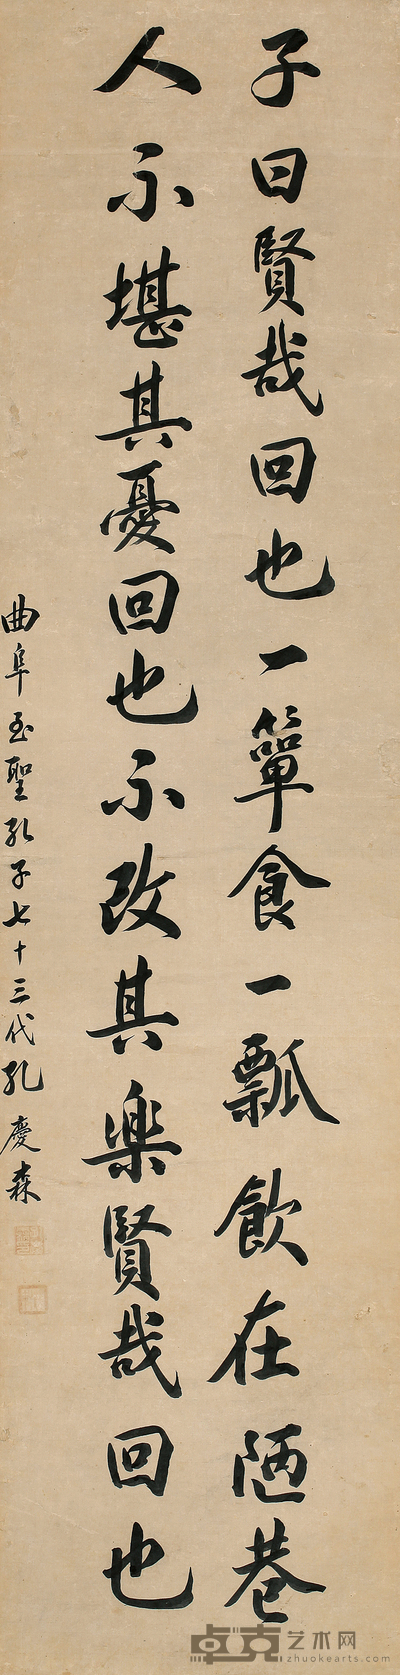 子曰賢哉回也一簞食一瓢飲在陋巷
人不堪其憂回也不改其樂賢哉回也
曲阜至聖孔子七十三代孔慶森
卓克艺术网
zhuokearts.com